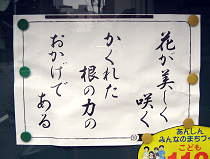 花が美しく
咲く
かくれた
根の力の
おかげで
ある
あんしん
みんなのまちづ
こども
110